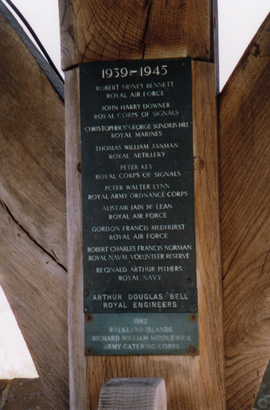 1939-1945
ROBERT SIDNEY BENNETT
ROYAL AIR FORCE
JOHN HARRY DOWNER
ROYAL CORPS OF SIGNALS
CHRISTOPHER ST GEORGE SUNDIUS HILL
ROYAL MARINES
THOMAS WILLIAM JANMAN
ROYAL ARTILLERY
PETER KEY
ROYAL CORPS OF SIGNALS
PETER WALTER LYNN
ROYAL ARMY ORDNANCE CORPS
ALISTAIR IAIN Mc LEAN
ROYAL AIR FORCE
GORDON FRANCIS MEDHURST
ROYAL AIR FORCE
ROBERT CHARLES FRANCIS NORMAN
ROYAL NAVAL VOLUNTEER RESERVE
REGINALD ARTHUR PITHERS
ROYAL NAVY
ARTHUR DOUGLAS BELL
ROYAL ENGINEERS
1982
FALKLAND ISLANDS
RICHARD WILLIAM MIDDLEWICK
ARMY CATERING CORPS